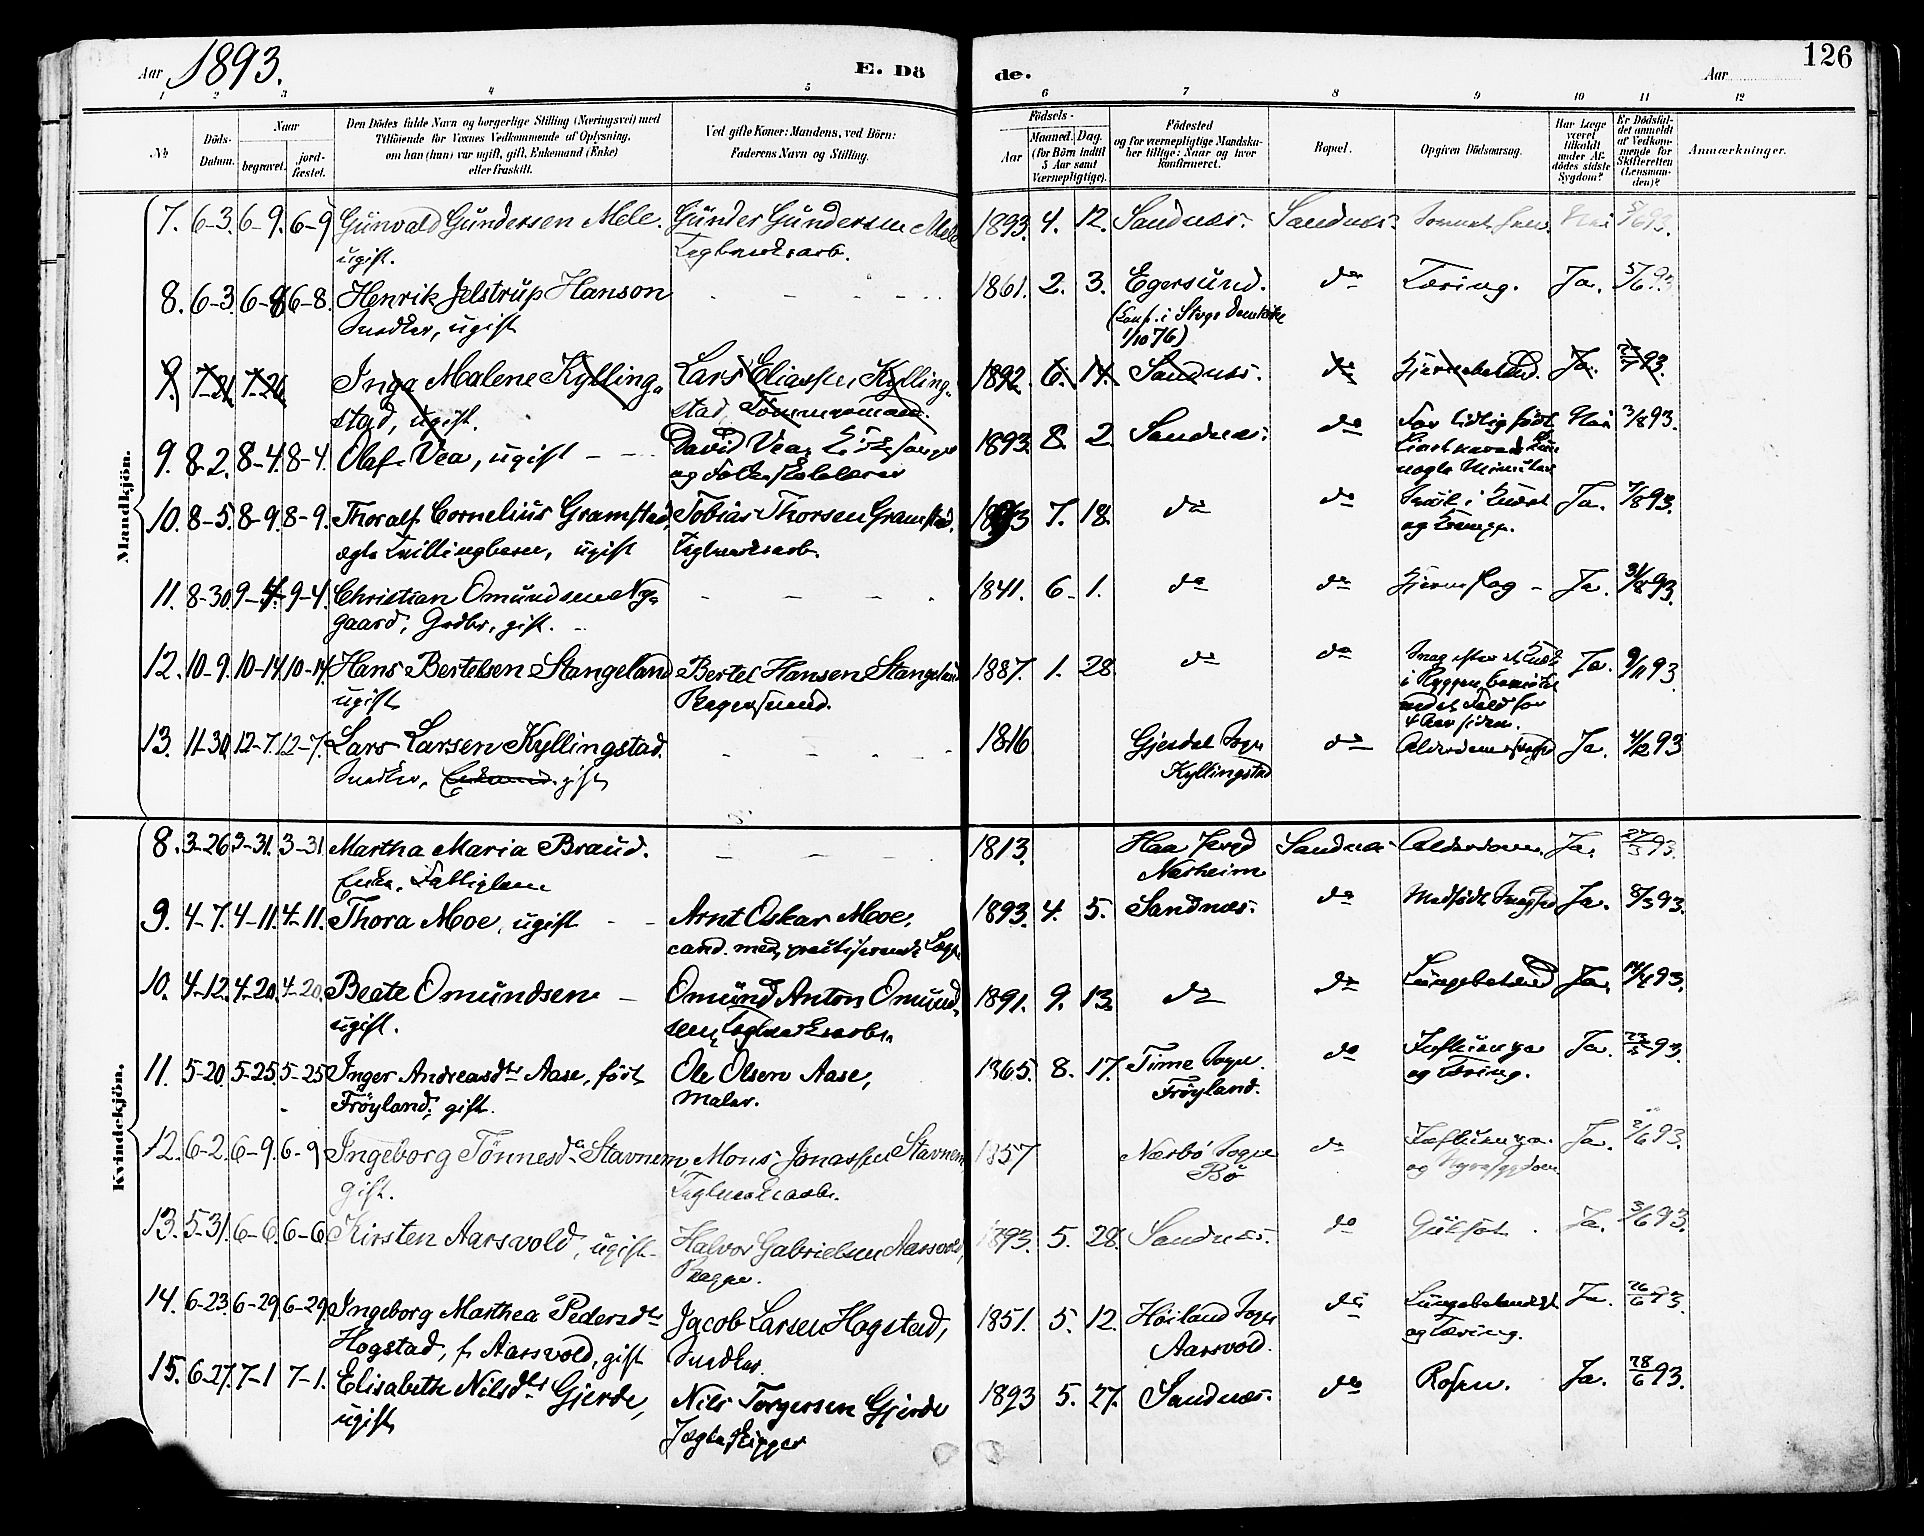 Aar 1893. E. Dö de. Aar 126
1 2 3 4 5 6 7 8 9 10 11 12
No Döds-Datum. Naar begravet. jordfæstet. Den Dödes fulde Navn og borgerlige Stilling (Næringsvei) med Tilföiende for Voxnes Vedkommende af Oplysning, om han (hun) var ugift, gift, Enkemand (Enke) eller fraskilt. Ved gifte Koner: Mandens, ved Börn: Faderens Navn og Stilling. Födsels- Aar Maaned. Dag. (for Börn indtil 5 Aar samt Værnepligtige). Födested og for værnepligtige Mandskaber tillige: Naar og hvor konfirmeret. Bopæl. Opgiven Dödsaarsag. Har Læge været tilkaldt under Afdödes sidste Sygdom? Er Dödsfaldet anmeldt af Vedkommende for Skifteretten (Lensmanden)? Anmærkninger.
Mandkjön.
7. 6-3. 6-9. 6-9 Gunvald Gundersen Mele. Gunder Gundersen Mele 1893. 4. 12. Sandnæs. Sandnæs. Nei 5/6 93.
ugift. Teglverksarb.
8. 6-3. 6-8 6-8. Henrik Jelstrup Hanson 1861. 2. 3. Egersund. do Tæring. Ja. 5/6 93
Snedker, ugift (Conf. i Stvgr Domkirke
1/10 76)
9. 7-21. 7-26 Inga Malene Kylling- Lars Eliassen Kylling- 1892. 6. 14. Sandnæs. do Hjernebetænd. Ja. 93.
stad, ugift. stad Tömmermand.
9. 8-2. 8-4. 8-4. Olaf Vea, ugift David Vea, Kirkesanger 1893. 8. 2. Sandnæs. do For tidlig födt Nei 3/8 93.
og Folkeskolelærer nogle Minutter
10. 8-5. 8-9. 8-9. Thoralf Cornelius Gramstad, Tobias Thorsen Gramstad. 1893 7. 18. do do Ja. 7/8 93.
ægte Tvillingbarn, ugift Teglverksarb. og Krampe.
11. 8-30. 9-4. 9-4. Christian Omundsen Ny- 1841. 6. 1. do do Hjerneslag Ja. 31/8 93.
gaard, Gaardbr, gift.
12. 10-9. 10-14. 10-14. Hans Bertelsen Stangeland Bertel Hansen Stangeland 1887. 1. 28. do do Svag efter et Ja. 9/11 93.
ugift Bagersvend. i Ryggen
ved et Fald for
4 Aar siden.
13. 11-30. 12-7. 12-7. Lars Larsen Kyllingstad. 1816 Gjesdal Sogn do Alderdomssvaghed Ja. 4/12 93
Snedker, Enkemand. gift Kyllingstad
Kvindekjön.
8. 3-26. 3-31. 3-31. Martha Maria Braud. 1813. Haa Sandnæs Alderdom. Ja. 27/3 93.
Enke, Fattiglem Nærheim
9. 4-7. 4-11. 4-11. Thora Moe, ugift Arnt Oskar Moe, 1893. 4. 5. Sandnæs. do Medfödt Svaghed Ja. 93.
cand. med, practiserende Læge
10. 4-12. 4-20. 4-20. Beate Omundsen Omund Anton Omund- 1891. 9. 13. do do Lungebetænd Ja. 14/4 93.
ugift. sen, Teglverksarb.
11. 5-20. 5-25. 5-25 Inger Andreasdtr Aase, födt Ole Olsen Aase, 1865. 8. 17. Time Sogn. do Influenza Ja. 23/5 93.
Fröyland, gift. Maler. Fröyland. og Tæring.
12. 6-2. 6-9. 6-9 Ingeborg Tönnesdtr Stavnem, Mons Jonassen Stavnem 1857 Nærbö Sogn do Influenza. Ja. 2/6 93.
gift. Teglverksarb. Bö og Nyresygdom
13. 5-31. 6-6. 6-6 Kirsten Aarsvold, ugift Halvor Gabrielsen Aarsvold, 1893. 5. 28. Sandnæs. do Gulsot. Ja. 3/6 93.
Bager.
14. 6-23. 6-29. 6-29. Ingeborg Marthea Pedersdtr Jacob Larsen Hogstad, 1851. 5. 12. Höiland Sogn do Lungebetændelse Ja. 26/6 93.
Hogstad, f. Aarsvold, gift Snedker. Aarsvold. og Tæring.
15. 6-27. 7-1 7-1. Elisabeth Nilsdtr Gjerde, Nils Torgersen Gjerde 1893 5. 27. Sandnæs. do Rosen. Ja. 28/6 93.
ugift Jægteskipper